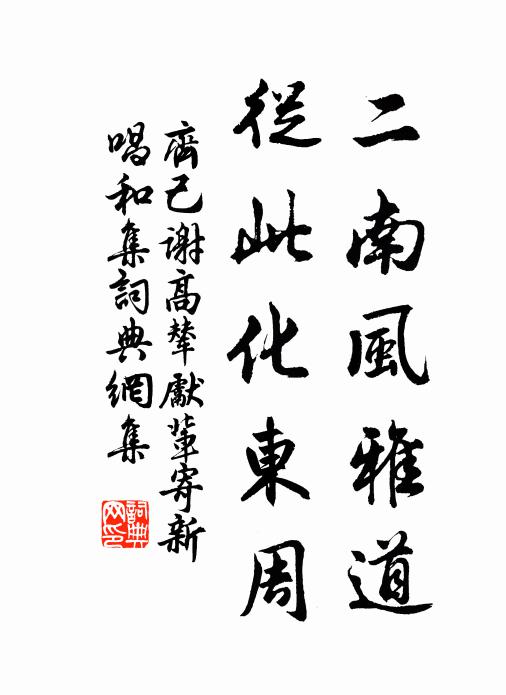 二南風雅道
從此化東周
齊己謝高輦獻輩寄新
唱和集詞典網集
詞典
网印